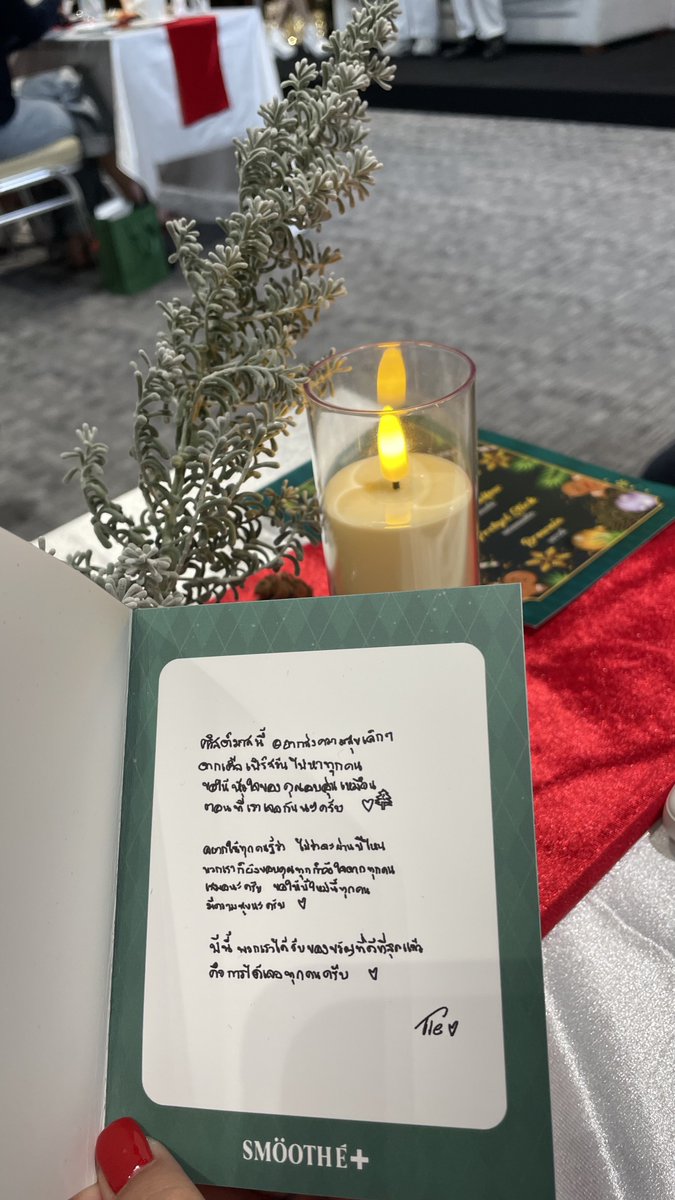 คริสต์มาสนี้ อยากส่งความสุขเล็กๆ
จากเติ้ล เฟิร์สวัน ไปหาทุกคน
ขอให้หัวใจของคุณอบอุ่นเหมือน
ตอนที่เราเจอกันนะครับ ♡
อยากให้ทุกคนรู้ว่า ไม่ว่าจะผ่านปีไหน
พวกเราก็ยังขอบคุณทุกกำลังใจจากทุกคน
เสมอนะครับ ขอให้ปีใหม่นี้ทุกคน
มีความสุขนะครับ ♡
ปีนี้ พวกเราได้รับของขวัญที่ดีที่สุดแล้ว
คือการได้เจอทุกคนครับ ♡
SMÖOTH É+